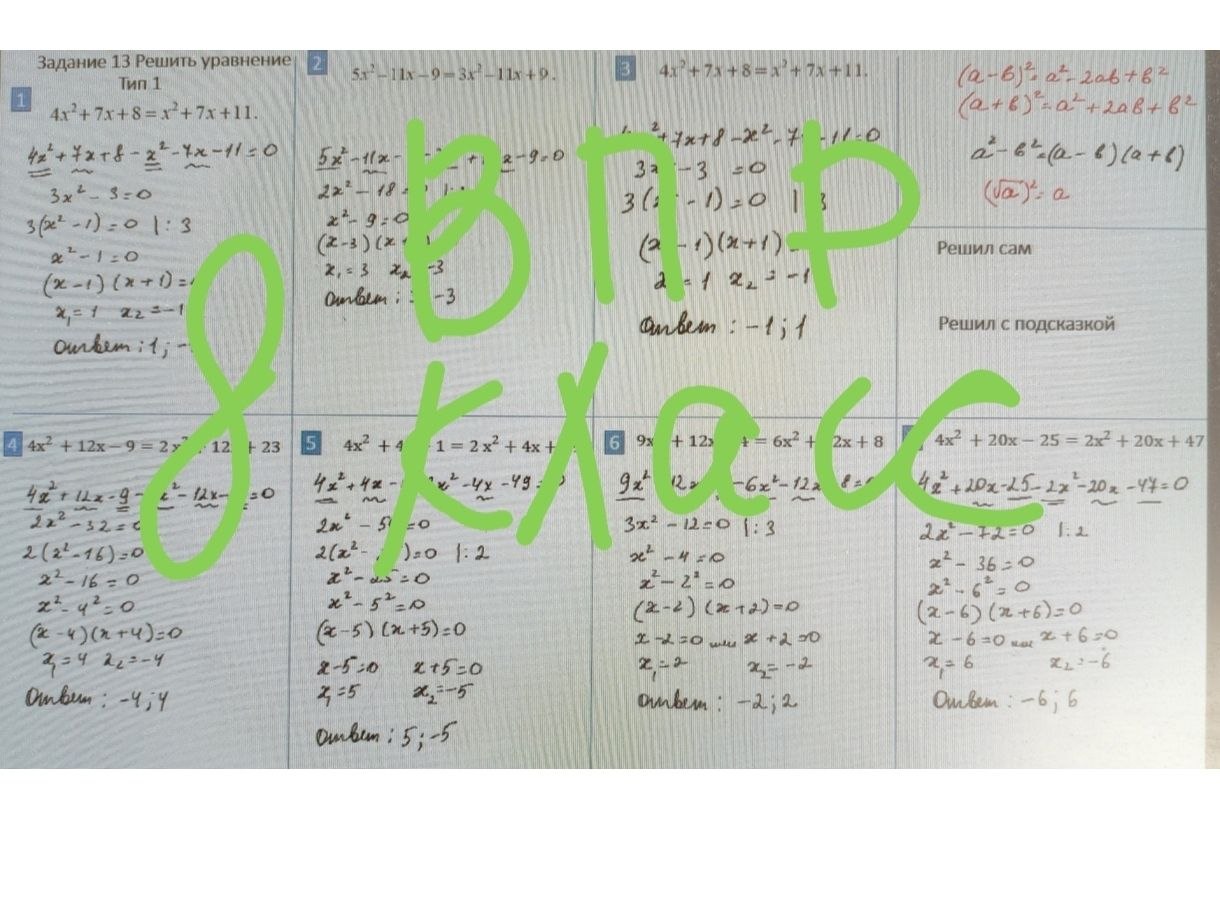 Задание 13 Решить уравнение
Тип 1
1
4x² + 7x + 8 = x² + 7x + 11.
4x² + 7x + 8 - x² - 7x - 11 = 0
3x² - 3 = 0
3(x² - 1) = 0 |: 3
x² - 1 = 0
(x - 1) (x + 1) =
x₁ = 1 x₂ = -1
Ответ: 1; -
2
5x² - 11x - 9 = 3x² - 11x + 9.
5x² - 11x - x - 9 = 0
2x² - 18 =
x² - 9 = 0
(x - 3) (x
x₁ = 3 x₂ -3
Ответ: -3
3
4x² + 7x + 8 = x² + 7x + 11.
² + 7x + 8 - x² - 7 - 11 = 0
3x - 3 = 0
3( - 1) = 0 | 3
(x - 1) (x + 1)
= 1 x₂ = -1
Ответ: -1; 1
(a - b)² = a² - 2ab + b²
(a + b)² = a² + 2ab + b²
a² - b² = (a - b) (a + b)
(√a)² = a
Решил сам
Решил с подсказкой
ВПР
8 класс
4
4x² + 12x - 9 = 2x² 12 + 23
4x² + 12x - 9 - x² - 12x - = 0
2x² - 32 = 0
2(x² - 16) = 0
x² - 16 = 0
x² - 4² = 0
(x - 4) (x + 4) = 0
x₁ = 4 x₂ = -4
Ответ: -4; 4
5
4x² + 4 1 = 2x² + 4x +
4x² + 4x - x² - 4x - 49 =
2x² - 5 = 0
2(x² - ) = 0 |: 2
x² - 25 = 0
x² - 5² = 0
(x - 5) (x + 5) = 0
x - 5 = 0 x + 5 = 0
x₁ = 5 x₂ = -5
Ответ: 5; -5
6
9x + 12x = 6x² + 2x + 8
9x² 12x - 6x² - 12x 8 =
3x² - 12 = 0 |: 3
x² - 4 = 0
x² - 2² = 0
(x - 2) (x + 2) = 0
x - 2 = 0 или x + 2 = 0
x₁ = 2 x₂ = -2
Ответ: -2; 2
4x² + 20x - 25 = 2x² + 20x + 47
4x² + 20x - 25 - 2x² - 20x - 47 = 0
2x² - 72 = 0 |: 2
x² - 36 = 0
x² - 6² = 0
(x - 6) (x + 6) = 0
x - 6 = 0 или x + 6 = 0
x₁ = 6 x₂ = -6
Ответ: -6; 6